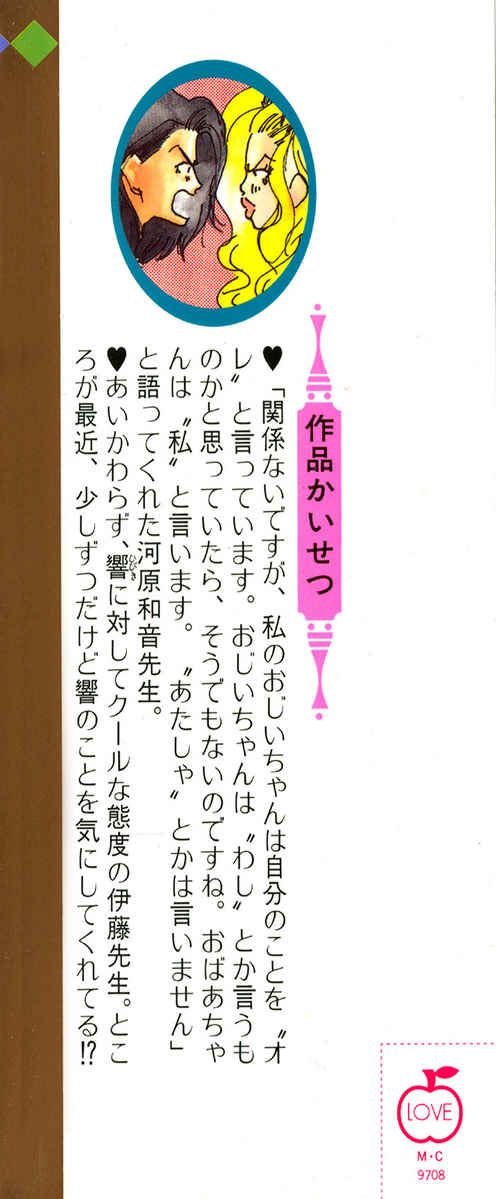 作品かいせつ
♥「関係ないですが、私のおじいちゃんは自分のことを〝オ
レ〟と言っています。おじいちゃんは〝わし〟とか言うも
のかと思っていたら、そうでもないのですね。おばあちゃ
んは〝私〟と言います。〝あたしゃ〟とかは言いません」
と語ってくれた河原和音先生。
♥あいかわらず、響に対してクールな態度の伊藤先生。とこ
ひびき
ろが最近、少しずつだけど響のことを気にしてくれてる!?
LOVE
M・C
9708